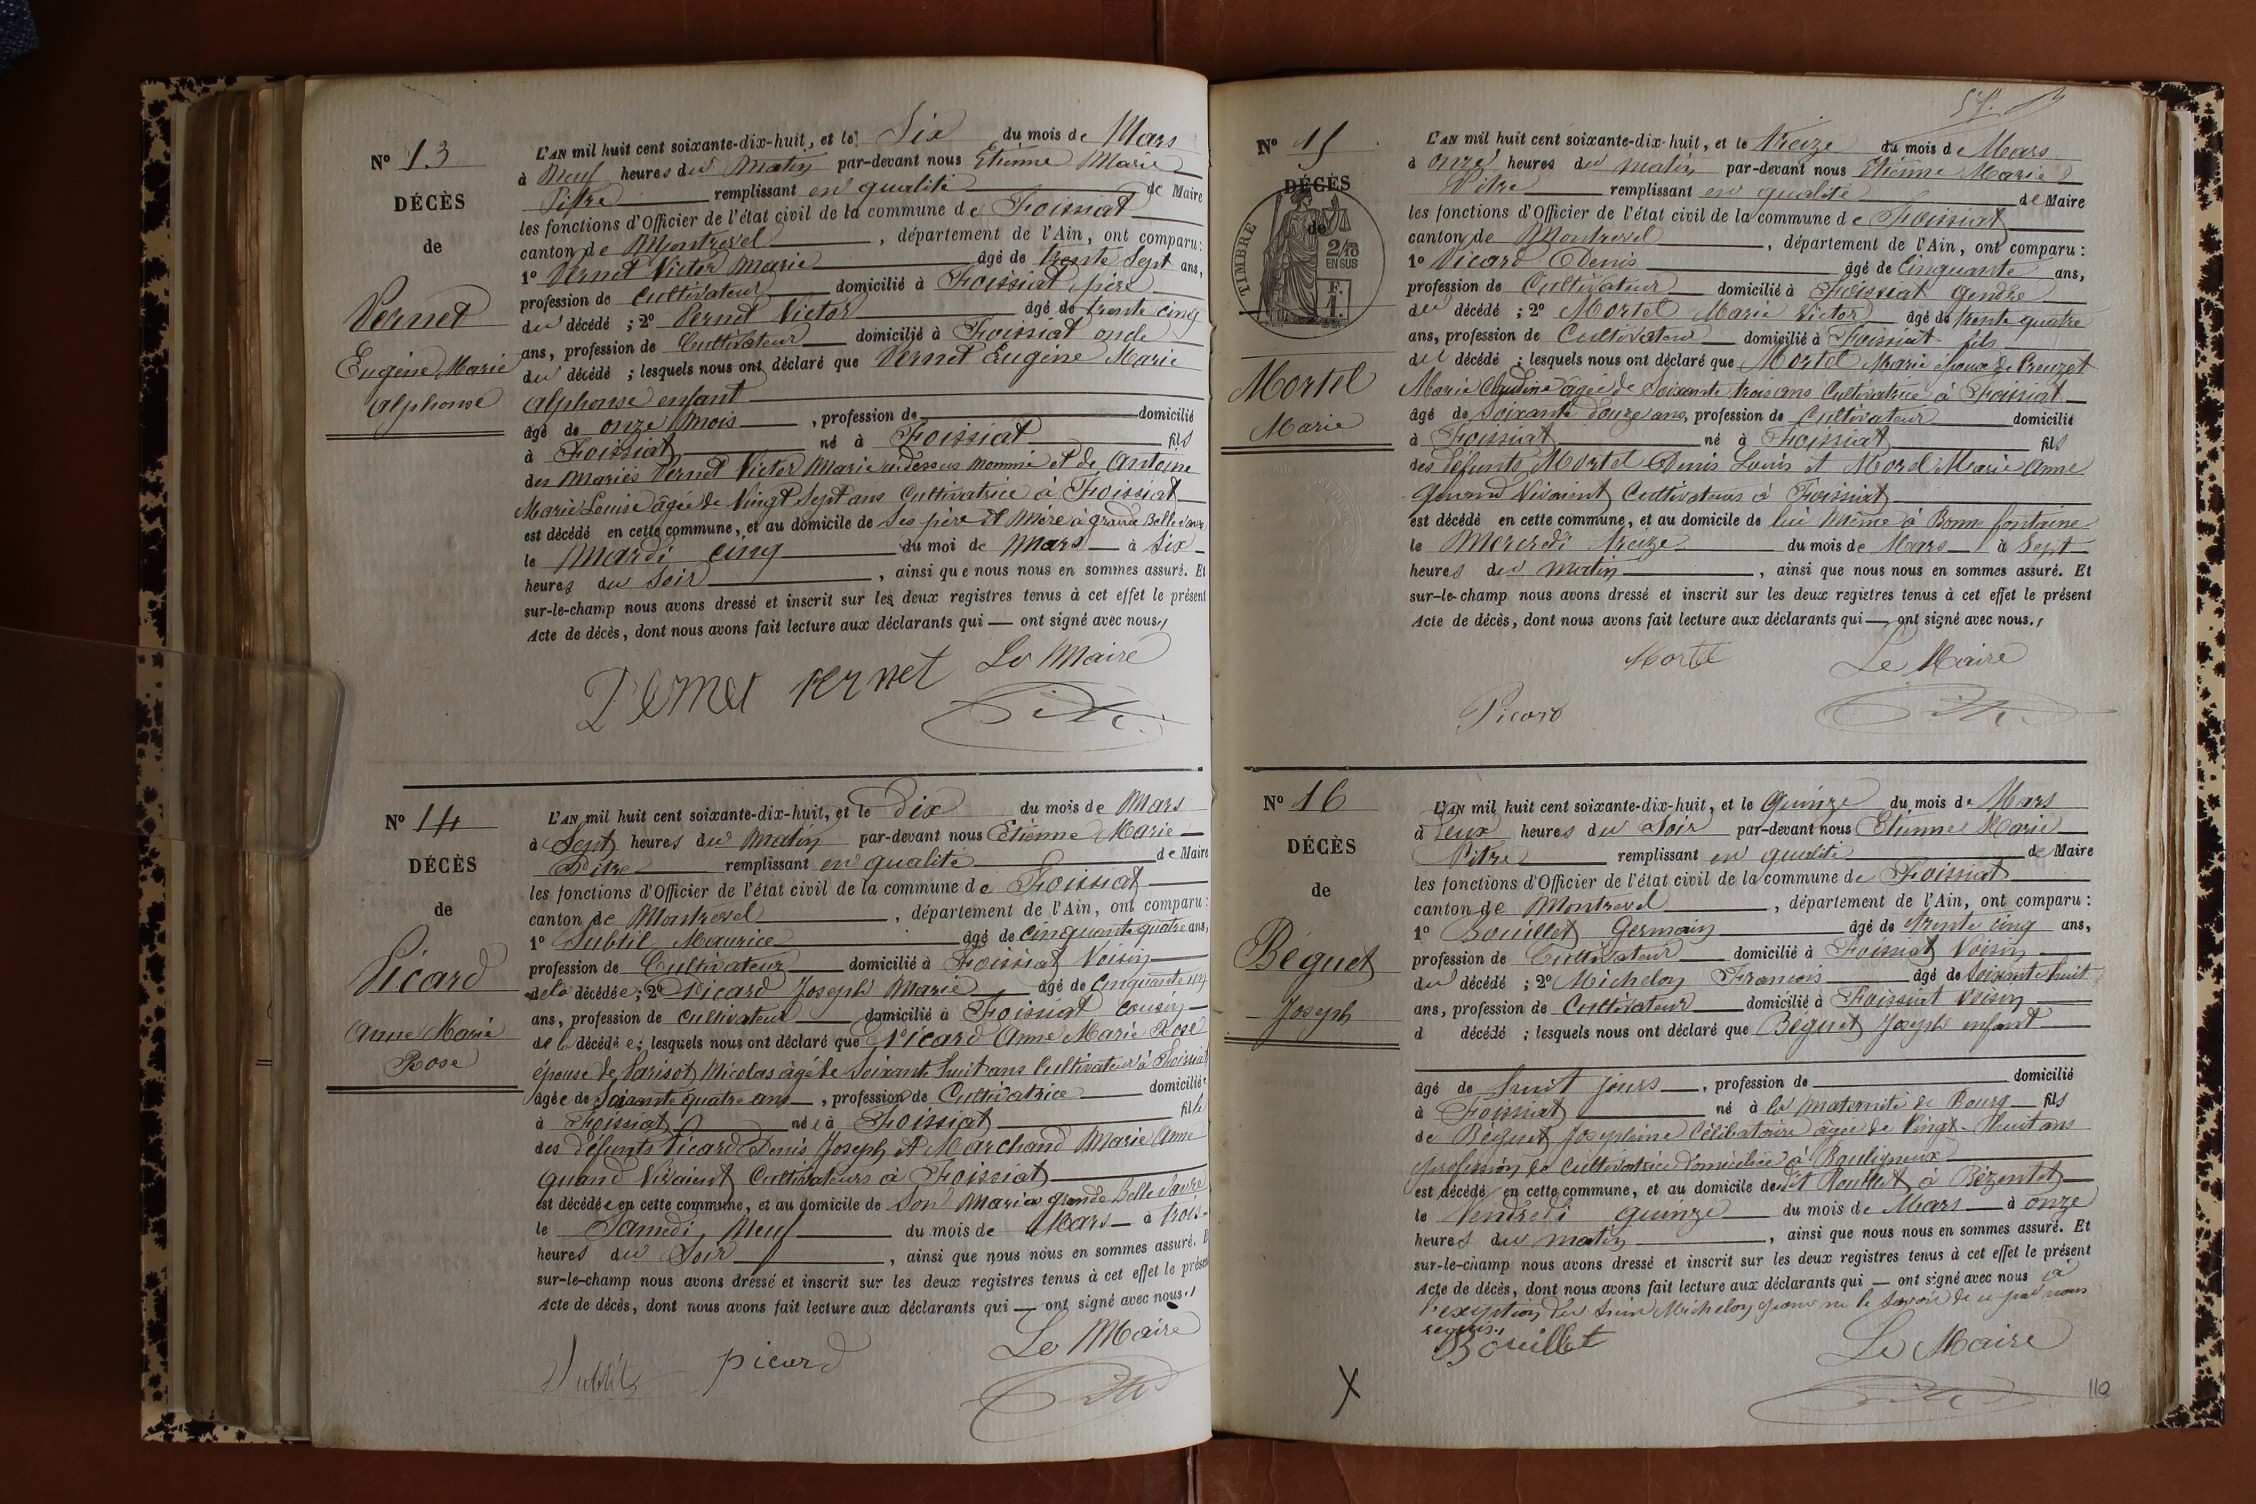 N° 13
DÉCÈS
de
Vernet
Eugène Marie
Alphonse
L'AN mil huit cent soixante-dix-huit, et le Six du mois de Mars
à Neuf heures du Matin par-devant nous Etienne Marie
Pitre remplissant en qualité de Maire
les fonctions d'Officier de l'état civil de la commune de Foissiat
canton de Montrevel, département de l'Ain, ont comparu:
1° Vernet Victor Marie âgé de trente Sept ans,
profession de Cultivateur domicilié à Foissiat père
du décédé ; 2° Vernet Victor âgé de trente cinq
ans, profession de Cultivateur domicilié à Foissiat oncle
du décédé ; lesquels nous ont déclaré que Vernet Eugène Marie
Alphonse enfant
âgé de onze mois, profession de domicilié
à Foissiat né à Foissiat fils
des Mariés Vernet Victor Marie ci dessus nommé et de Antoine
Marie Louise âgée de Vingt Sept ans Cultivatrice à Foissiat
est décédé en cette commune, et au domicile de Ses père et Mère à grande Belle
le Mardi cinq du moi de Mars à Six
heures du Soir, ainsi que nous nous en sommes assuré. Et
sur-le-champ nous avons dressé et inscrit sur les deux registres tenus à cet effet le présent
Acte de décès, dont nous avons fait lecture aux déclarants qui — ont signé avec nous.
Vernet vernet Le Maire
Pitre
N° 14
DÉCÈS
de
Picard
Anne Marie
Rose
L'AN mil huit cent soixante-dix-huit, et le Dix du mois de Mars
à Sept heures du Matin par-devant nous Etienne Marie
Pitre remplissant en qualité de Maire
les fonctions d'Officier de l'état civil de la commune de Foissiat
canton de Montrevel, département de l'Ain, ont comparu:
1° Subtil Maurice âgé de Cinquante quatre ans,
profession de Cultivateur domicilié à Foissiat Voisin
de la décédée; 2° Picard Joseph Marie âgé de Cinquante
ans, profession de Cultivateur domicilié à Foissiat cousin
de la décédée; lesquels nous ont déclaré que Picard Anne Marie Rose
épouse de Parisot Nicolas âgé de Soixante huit ans Cultivateur à Foissiat
âgée de Soixante quatre ans, profession de Cultivatrice domicilié
à Foissiat née à Foissiat fille
des défunts Picard Denis Joseph et Marchand Marie Anne
quand Vivaient Cultivateurs à Foissiat
est décédée en cette commune, et au domicile de Son Mari à grande Belle
le Samedi Neuf du mois de Mars à trois
heures du Soir, ainsi que nous nous en sommes assuré. E
sur-le-champ nous avons dressé et inscrit sur les deux registres tenus à cet effet le présen
Acte de décès, dont nous avons fait lecture aux déclarants qui — ont signé avec nous.
Le Maire
Subtil picard
Pitre
N° 15
DÉCÈS
de
TIMBRE
2/10
EN SUS
F.
1.
Mortel
Marie
L'AN mil huit cent soixante-dix-huit, et le Treize du mois de Mars
à onze heures du matin par-devant nous Etienne Marie
Pitre remplissant en qualité de Maire
les fonctions d'Officier de l'état civil de la commune de Foissiat
canton de Montrevel, département de l'Ain, ont comparu:
1° Picard Denis âgé de Cinquante ans,
profession de Cultivateur domicilié à Foissiat gendre
du décédé ; 2° Mortel Marie Victor âgé de trente quatre
ans, profession de Cultivateur domicilié à Foissiat fils
du décédé ; lesquels nous ont déclaré que Mortel Marie époux de Creuzet
Marie Claudine âgée de Soixante trois ans Cultivatrice à Foissiat
âgé de Soixante douze ans, profession de Cultivateur domicilié
à Foissiat né à Foissiat fils
des défunts Mortel Denis Louis et Morel Marie Anne
quand Vivaient Cultivateurs à Foissiat
est décédé en cette commune, et au domicile de lui Même à Bonne fontaine
le Mercredi treize du mois de Mars à Sept
heures du matin, ainsi que nous nous en sommes assuré. Et
sur-le-champ nous avons dressé et inscrit sur les deux registres tenus à cet effet le présent
Acte de décès, dont nous avons fait lecture aux déclarants qui — ont signé avec nous.
Mortel Le Maire
Picard Pitre
N° 16
DÉCÈS
de
Béguet
Joseph
L'AN mil huit cent soixante-dix-huit, et le Quinze du mois de Mars
à deux heures du Soir par-devant nous Etienne Marie
Pitre remplissant en qualité de Maire
les fonctions d'Officier de l'état civil de la commune de Foissiat
canton de Montrevel, département de l'Ain, ont comparu:
1° Bouillet Germain âgé de trente cinq ans,
profession de Cultivateur domicilié à Foissiat Voisin
du décédé ; 2° Michelon François âgé de Soixante huit
ans, profession de Cultivateur domicilié à Foissiat Voisin
d décédé ; lesquels nous ont déclaré que Béguet Joseph enfant
âgé de huit jours, profession de domicilié
à Foissiat né à la maternité de Bourg fils
de Béguet Joséphine Célibataire âgée de Vingt-Huit ans
profession de Cultivatrice domiciliée à Bouligneux
est décédé en cette commune, et au domicile de dit Bouillet à Bézentet
le Vendredi quinze du mois de Mars à onze
heures du matin, ainsi que nous nous en sommes assuré. Et
sur-le-champ nous avons dressé et inscrit sur les deux registres tenus à cet effet le présent
Acte de décès, dont nous avons fait lecture aux déclarants qui — ont signé avec nous à
l'exception du Sieur Michelon pour ne le Savoir de ce par nous
requis.
Bouillet Le Maire
Pitre
110